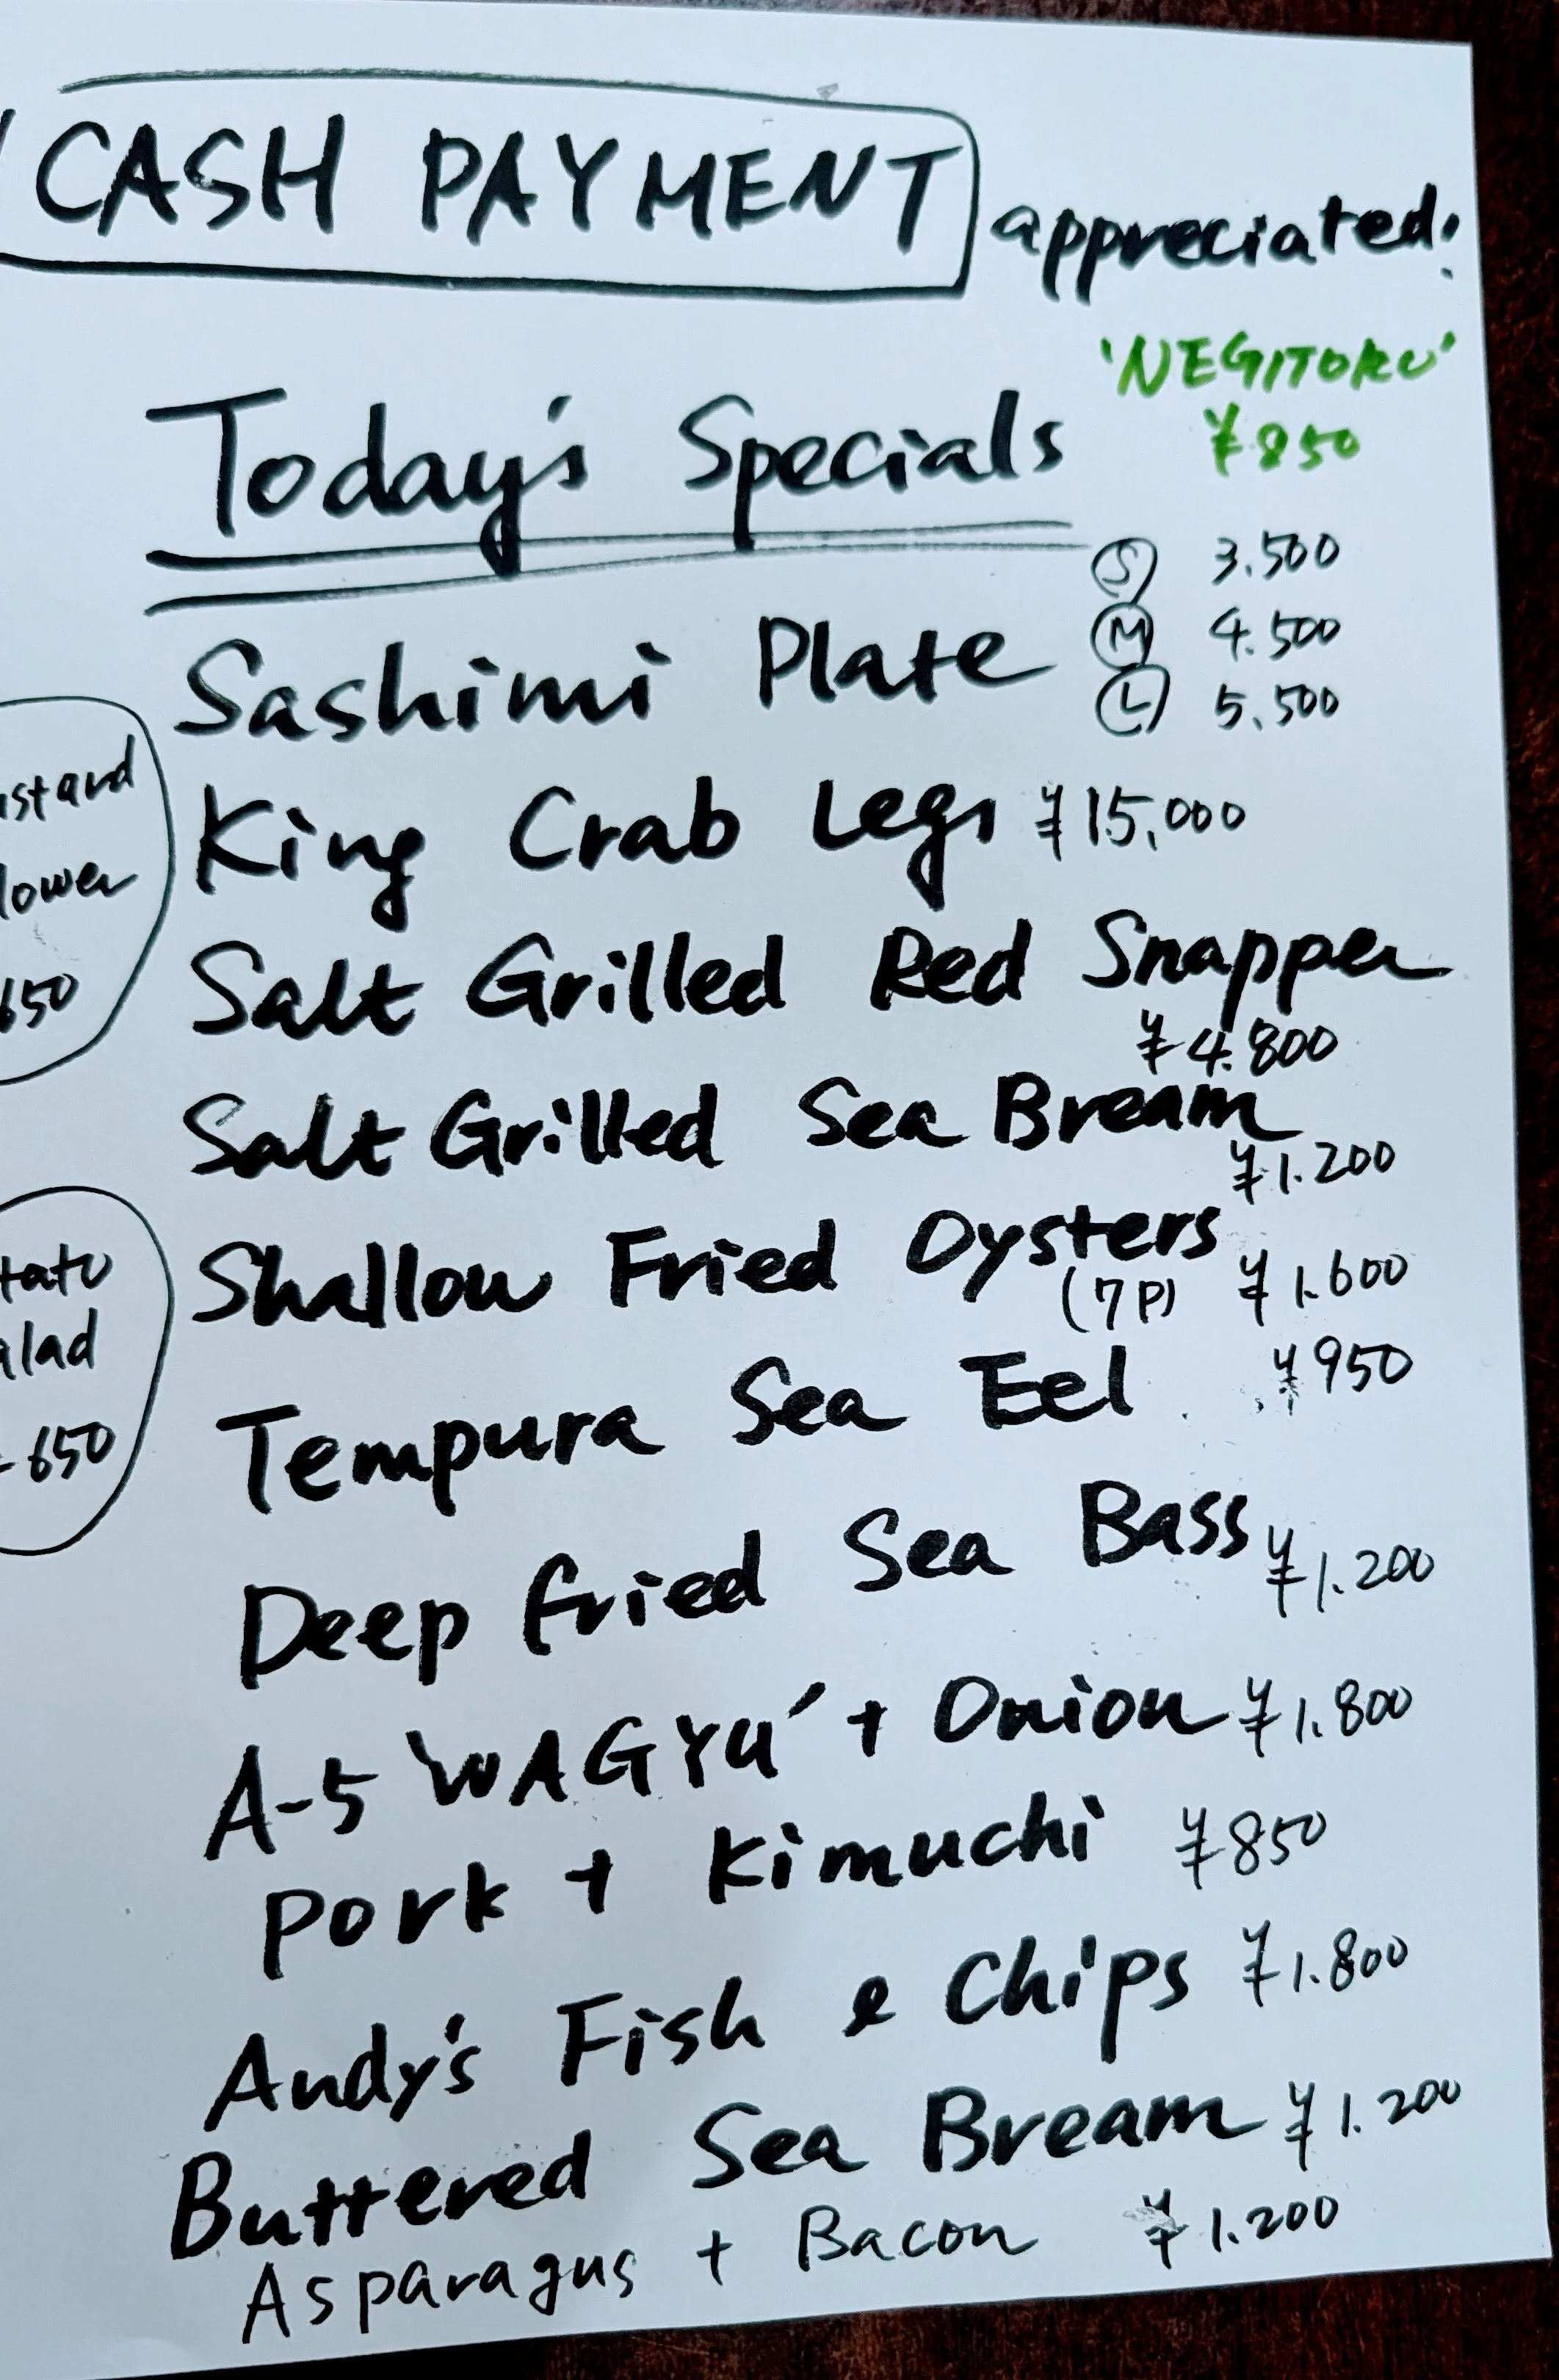 CASH PAYMENT appreciated!
'NEGITORO'
¥850
Today's Specials
Sashimi Plate
Ⓢ 3.500
Ⓜ 4.500
Ⓛ 5.500
King Crab Legs ¥15,000
Salt Grilled Red Snapper
¥4.800
Salt Grilled Sea Bream
¥1.200
Shallow Fried Oysters
(7P) ¥1.600
Tempura Sea Eel ¥950
Deep fried Sea Bass ¥1.200
A-5 'WAGYU' + Onion ¥1.800
Pork + Kimuchi ¥850
Andy's Fish & Chips ¥1.800
Buttered Sea Bream ¥1.200
Asparagus + Bacon ¥1.200
650
650